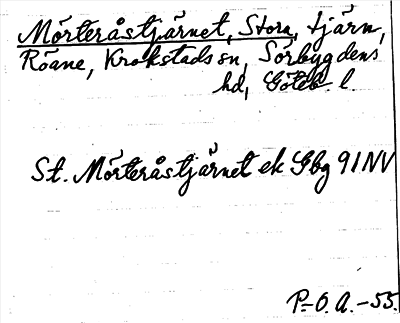 Mörteråstjärnet, Stora, tjärn,
Röane, Krokstads sn, Sörbygdens
hd, Göteb. l.
St. Mörteråstjärnet ek Gbg 91 NV
P-O. A. -55.